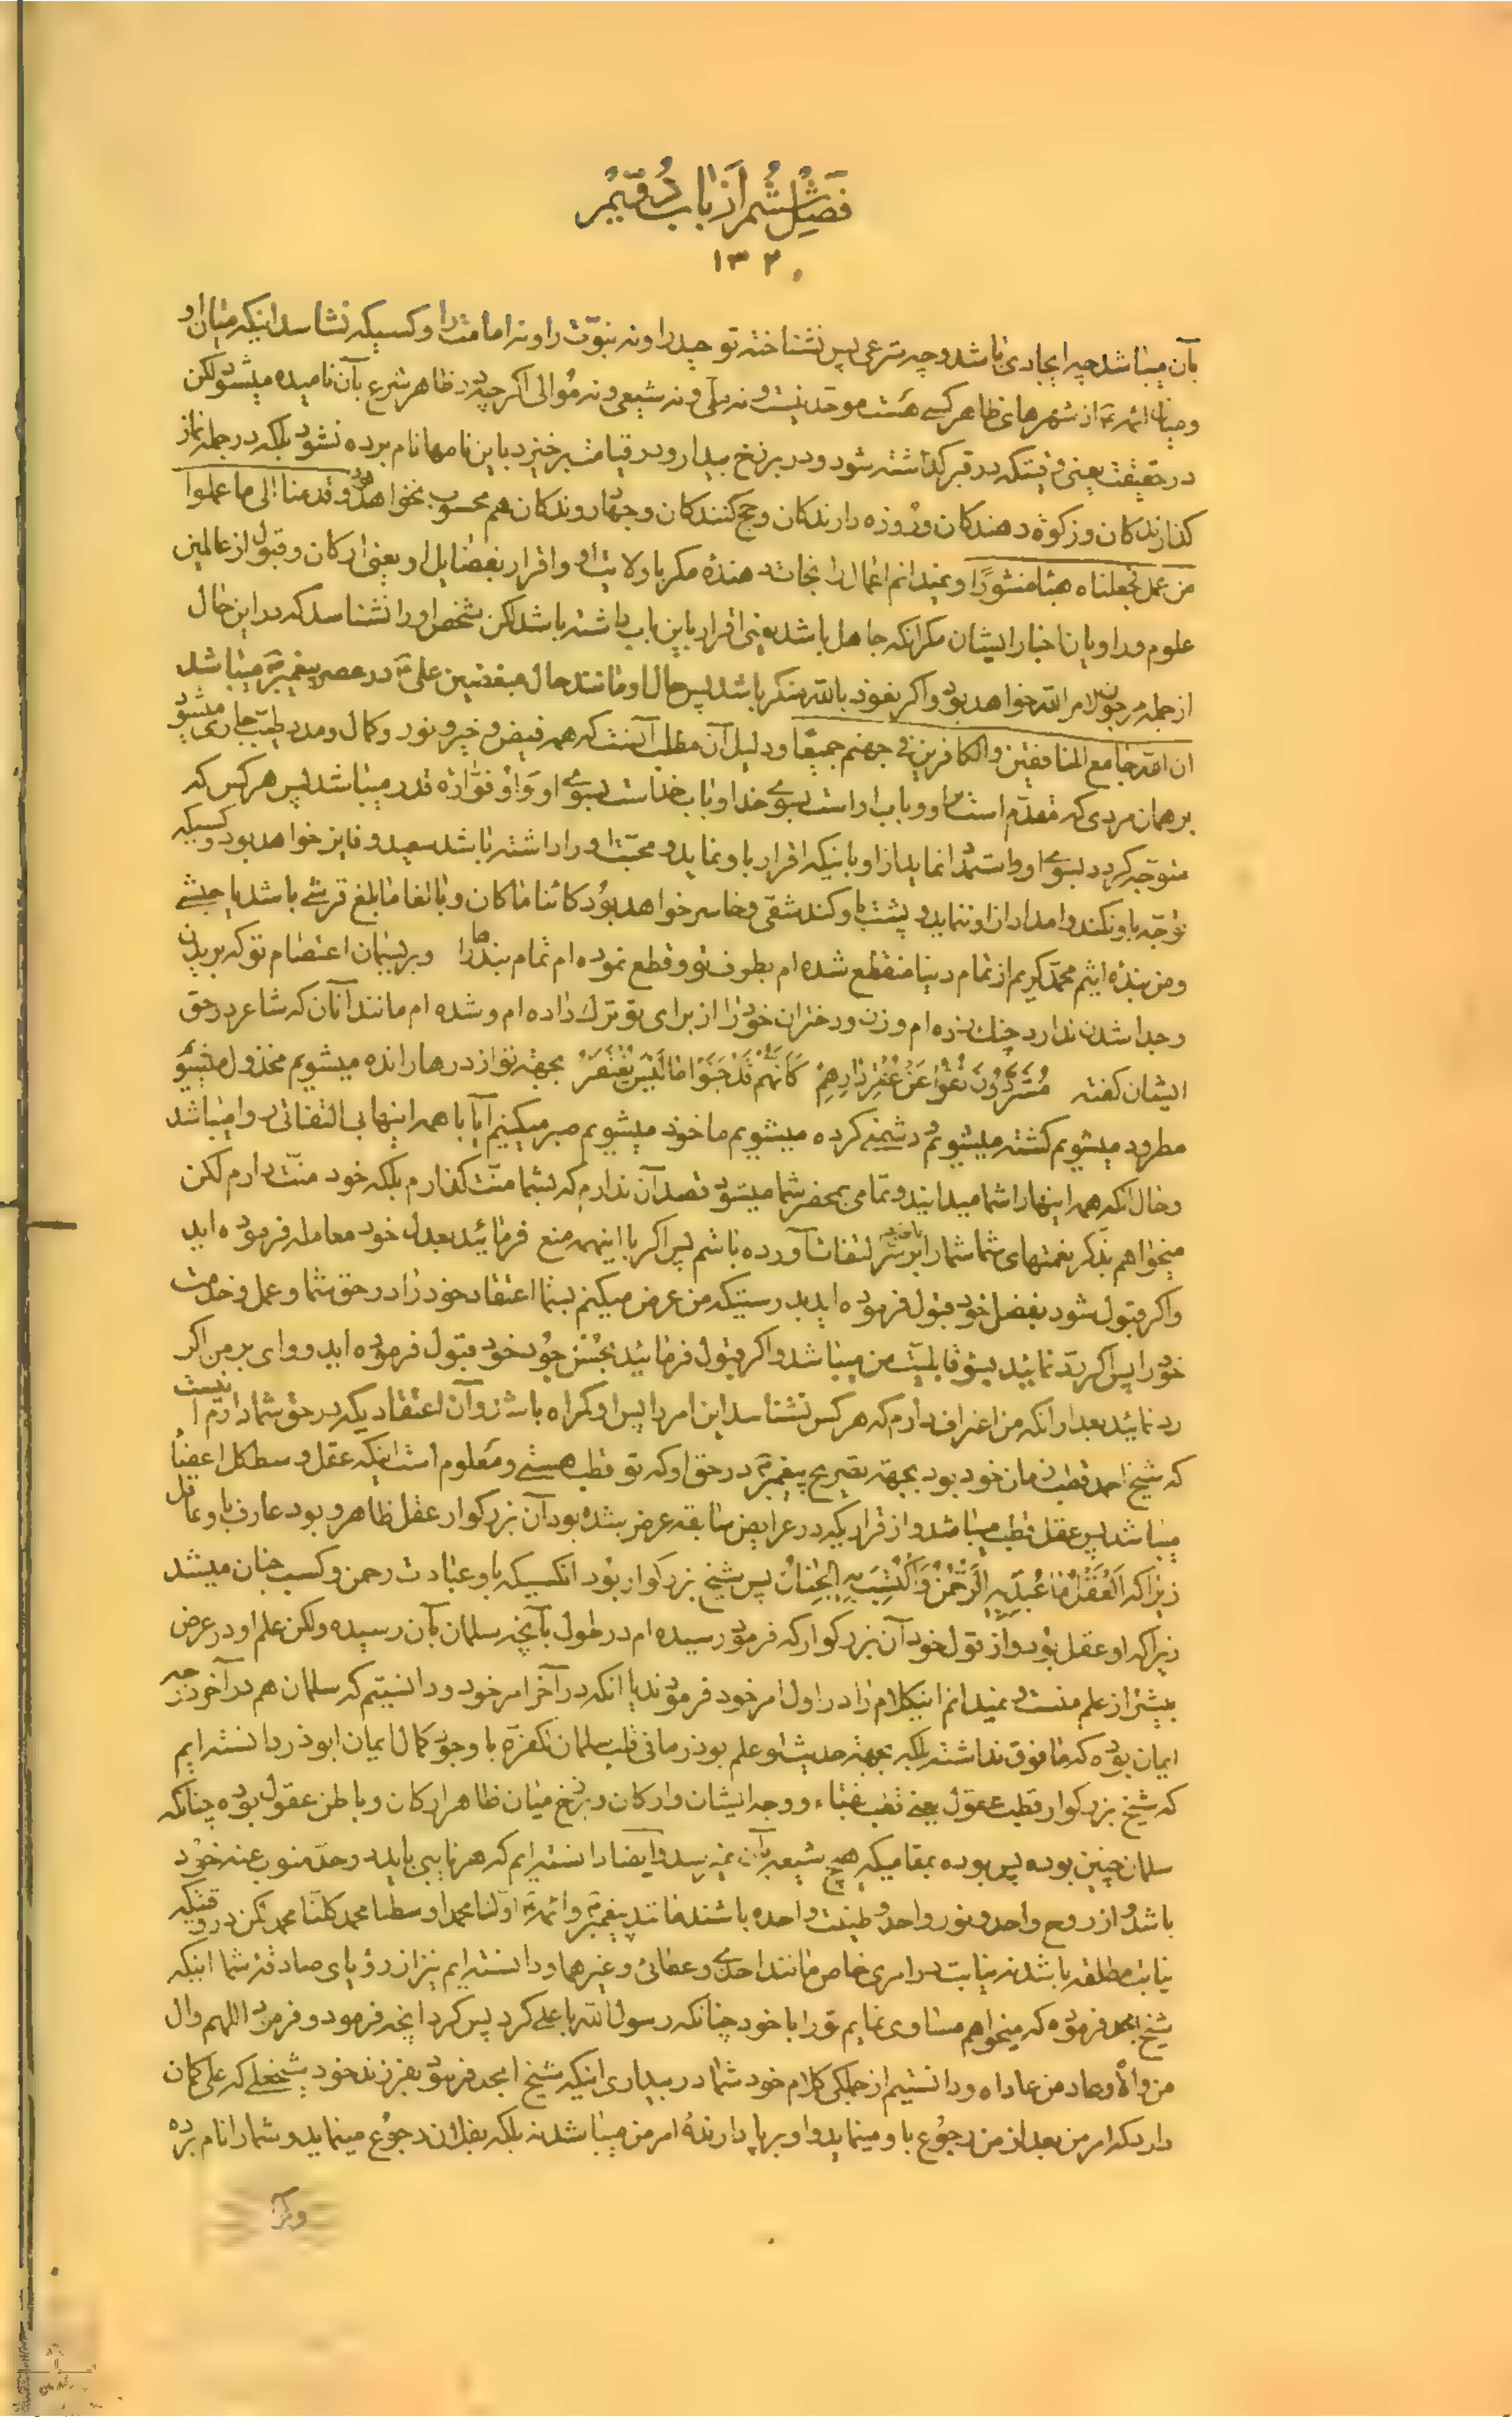 فصل ششم از باب دویم
۱۳۲۰
بآن میباشد چه ایجادی باشد و چه شرعی پس نشناخته توحید را و نه نبوّت را و نه امامت را و کسیکه نشناسد اینکه میان او
و میان ائمه از شهرهای ظاهر کسی هست موحّد نیست و نه ملّی و نه شیعی و نه مُوالی اگر چه در ظاهر شرع بآن نامیده میشود لکن
در حقیقت یعنی وقتیکه در قبر گذاشته شود و در برزخ بیدار و در قیامت برخیزد باین نامها نام برده نشود بلکه در جمله نماز
گذارندگان و زکوة دهندگان و روزه دارندگان و حج کنندگان و جهاد روندگان هم محسوب نخواهد بود و قدمنا الی ما عملوا
من عمل فجعلناه هباءً منثورًا و نمیدانم اعمال را نجات دهنده مگر بولایت او و اقرار بفضایل او یعنی ارکان و قبول از عالمین
علوم و راویان اخبار ایشان مگر آنکه جاهل باشد یعنی اقرار باین باب داشته باشد لکن شخص او را نشناسد که در این حال
از جمله مرجون لامر الله خواهد بود و اگر نعوذ بالله منکر باشد پس حال او مانند حال مبغضین علی در عصر پیغمبر میباشد
ان الله جامع المنافقین والکافرین فی جهنم جمیعًا و دلیل آن مطلب آنست که همه فیض و خیر و نور و کمال و مدد طیّب جاری میشود
بر همان مردی که مقدّم است او و باب او است بسوی خدا و باب خداست بسوی او و فوّاره قدر میباشد پس هر کس که
متوجّه گردد بسوی او و استمداد نماید از او باینکه اقرار باو نماید و محبّت او را داشته باشد سعید و فایز خواهد بود و کسیکه
توجّه باو نکند و امداد از او ننماید و پشت باو کند شقی و خاسر خواهد بود کائناً ما کان و بالغا ما بلغ قرشی باشد یا حبشی
و من بنده اثیم محمد کریم از تمام دنیا منقطع شده ام بطرف تو و قطع نموده ام تمام بندها را و بریسمان اعتصام تو که بریدن
و جدا شدن ندارد چنگ زده ام و زن و دختران خود را از برای تو ترک داده ام و شده ام مانند آنان که شاعر در حق
ایشان گفته مُشَرَّدُونَ نُفُوا عَنْ عُقْرِ دَارِهِمْ کَأَنَّهُمْ قَدْ جَنَوْا مَا لَیْسَ یُغْتَفَرُ بجهة تو از درها رانده میشویم مخذول میشویم
مطرود میشویم کشته میشویم دشمنی کرده میشویم ماخوذ میشویم صبر میکنیم آیا با همه اینها بی التفاتی روا میباشد
و حال آنکه همه اینها را شما میدانید و تمامی بمحضر شما میشود قصد آن ندارم که بشما منّت گذارم بلکه خود منّت دارم لکن
میخواهم بذکر نعمتهای شما شما را بر سر التفات آورده باشم پس اگر با اینهمه منع فرمائید بعدل خود معامله فرموده اید
و اگر قبول شود بفضل خود قبول فرموده اید بدرستیکه من عرض میکنم بشما اعتقاد خود را در حق شما و عمل و خدمت
خود را پس اگر ردّ نمائید بسوء قابلیّت من میباشد و اگر قبول فرمائید بحُسن جُود خود قبول فرموده اید و وای بر من اگر
رد نمائید بعد از آنکه من اعتراف دارم که هر کس نشناسد این امر را پس او گمراه باشد و آن اعتقادیکه در حق شما دارم آنست
که شیخ احمد قطب زمان خود بود بجهة تصریح پیغمبر در حق او که تو قطب هستی و معلوم است اینکه عقل وسط کل اعضا
میباشد پس عقل قطب میباشد و از قراریکه در عرایض سابقه عرض شده بود آن بزرگوار عقل ظاهر و بود عارف باو عاقل
زیرا که اَلعَقْلُ مَا عُبِدَ بِهِ الرَّحْمٰنُ وَاکْتُسِبَ بِهِ الجِنَانُ پس شیخ بزرگوار بود آنکسیکه باو عبادت رحمن و کسب جنان میشد
زیرا که او عقل بود و از قول خود آن بزرگوار که فرمود رسیده ام در طول بآنچه سلمان بآن رسیده ولکن علم او در عرض
بیشتر از علم منست و نمیدانم اینکلام را در اول امر خود فرمودند یا آنکه در آخر امر خود و دانستیم که سلمان هم در آخر درجه
ایمان بوده که مافوق نداشته بلکه بجهة حدیث لو علم بوذر ما فی قلب سلمان لکفره با وجود کمال ایمان ابوذر دانسته ایم
که شیخ بزرگوار قطب عقول یعنی نقباء و وجه ایشان و ارکان و برزخ میان ظاهر ارکان و باطن عقول بوده چنانکه
سلمان چنین بوده پس بوده بمقامیکه هیچ شیعه بآن نمیرسد و ایضا دانسته ایم که هر نایبی باید در حدّ منوب عنه خود
باشد و از روح واحد و نور واحد و طینت واحده باشند مانند پیغمبر و ائمه اوّلنا محمد اوسطنا محمد کلّنا محمد لکن در وقتیکه
نیابت مطلقه باشد نه نیابت در امری خاص مانند احدی و عطائی و غیرهما و دانسته ایم نیز از رؤیای صادقه شما اینکه
شیخ امجد فرموده که میخواهم مساوی نمایم تو را با خود چنانکه رسول الله با علی کرد پس کرد آنچه فرمود و فرمود اللهم وال
من والاه و عاد من عاداه و دانستیم از جملگی کلام خود شما در بیداری اینکه شیخ امجد فرمود بفرزند خود شیخ علی که علی گمان
دارد که امر من بعد از من رجوع باو مینماید و او برپا دارندهٔ امر من میباشد نه بلکه بفلان رجوع مینماید و شما را نام برده